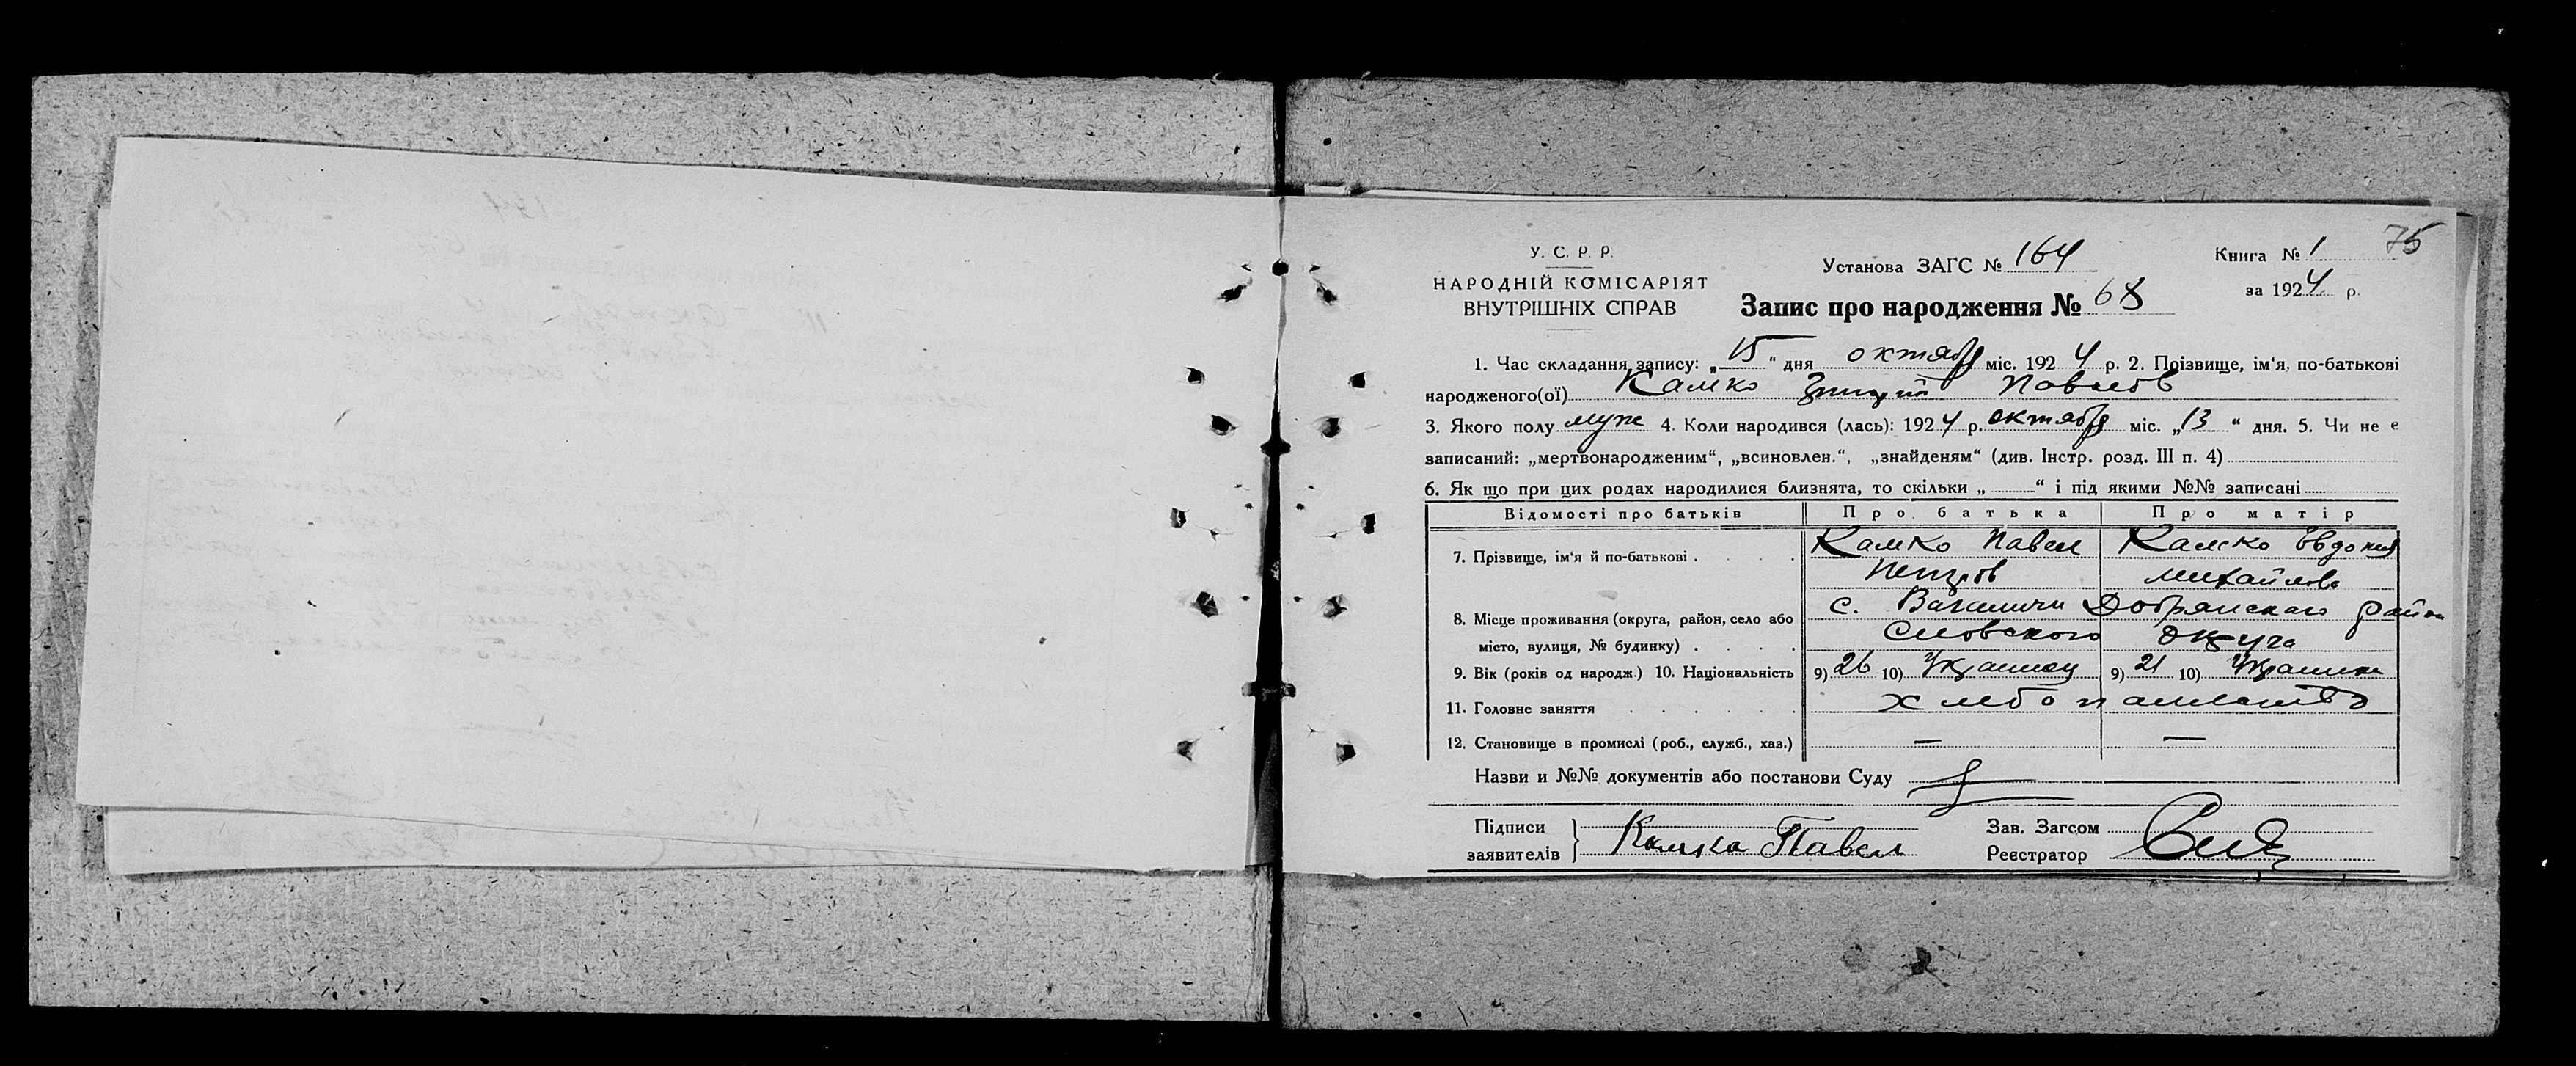 75
У. С. Р. Р.
НАРОДНІЙ КОМІСАРІЯТ
ВНУТРІШНІХ СПРАВ
Установа ЗАГС № 164
Книга № 1
за 1924 р.
Запис про народження № 68
1. Час складання запису: „15“ дня октября міс. 1924 р. 2. Прізвище, ім‘я, по-батькові
народженого(ої) Камко Павлов
3. Якого полу муж 4. Коли народився (лась): 1924 р. октября міс. „13“ дня. 5. Чи не є
записаний: „мертвонародженим“, „всиновлен.“, „знайденям“ (див. Інстр. розд. III п. 4)
6. Як що при цих родах народилися близнята, то скільки „ “ і під якими №№ записані
Відомості про батьків Про батька Про матір
7. Прізвище, ім‘я й по-батькові . . . Камко Павел Камко Евдокия
Петров Михайлова
8. Місце проживання (округа, район, село або с. Ваганичи Добрянского район
місто, вулиця, № будинку) . . . . Сновского округа
9. Вік (років од народж.) 10. Національність 9) 26 10) Украинец 9) 21 10) Украинка
11. Головне заняття . . . . . . хлебопашество
12. Становище в промислі (роб., служб., хаз.) — —
Назви и №№ документів або постанови Суду
Підписи
заявителів } Камко Павел
Зав. Загсом
Реєстратор